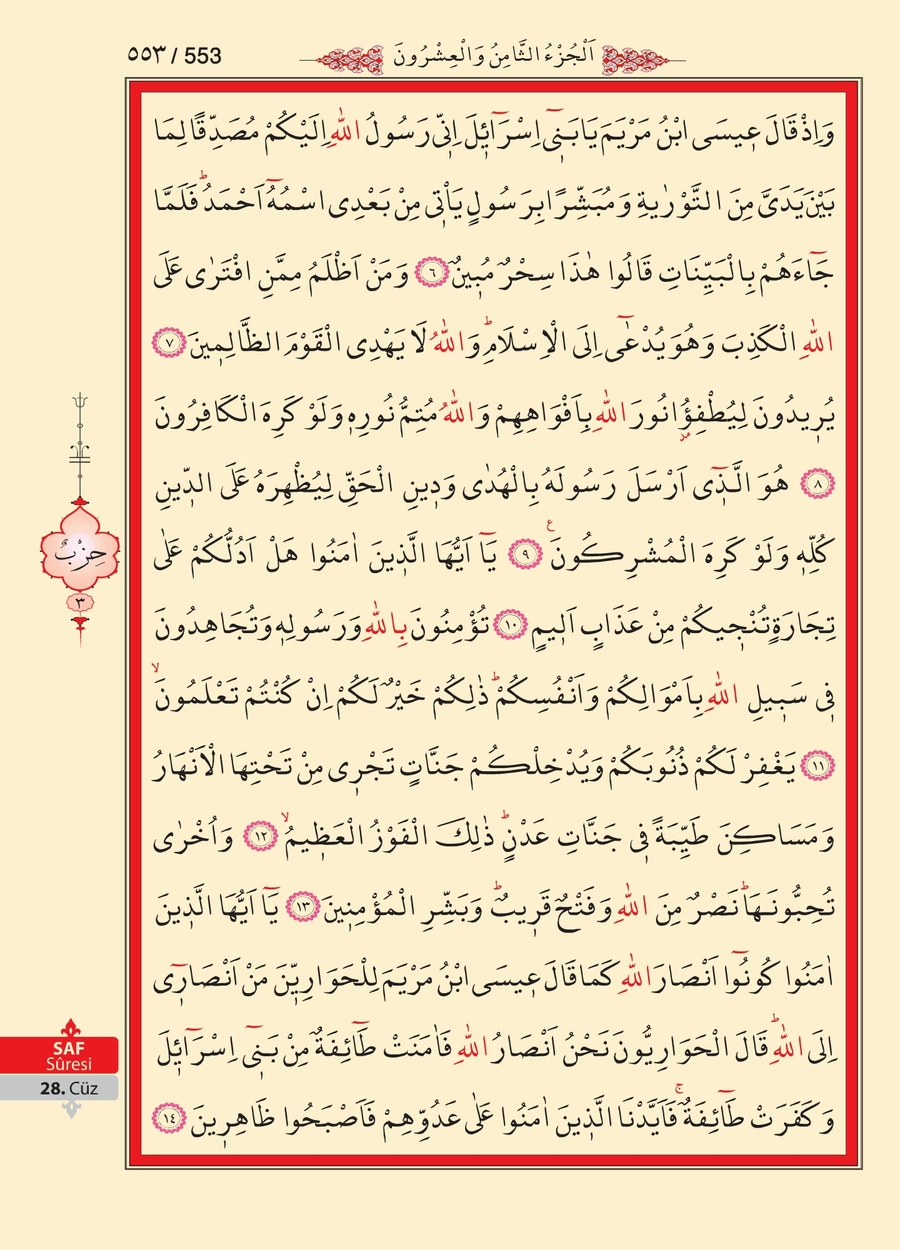 ٥٥٣ / 553
اَلْجُزْءُ الثَّامِنُ وَالْعِشْرُونَ
وَاِذْ قَالَ ع۪يسَى ابْنُ مَرْيَمَ يَا بَن۪ٓي اِسْرَٓائ۪لَ اِنّ۪ي رَسُولُ اللّٰهِ اِلَيْكُمْ مُصَدِّقًا لِمَا
بَيْنَ يَدَيَّ مِنَ التَّوْرٰيةِ وَمُبَشِّرًا بِرَسُولٍ يَأْت۪ي مِنْ بَعْدِي اسْمُهُٓ اَحْمَدُۜ فَلَمَّا
جَٓاءَهُمْ بِالْبَيِّنَاتِ قَالُوا هٰذَا سِحْرٌ مُب۪ينٌ ﴿٦﴾ وَمَنْ اَظْلَمُ مِمَّنِ افْتَرٰى عَلَى
اللّٰهِ الْكَذِبَ وَهُوَ يُدْعٰٓى اِلَى الْاِسْلَامِۜ وَاللّٰهُ لَا يَهْدِي الْقَوْمَ الظَّالِم۪ينَ ﴿٧﴾
يُر۪يدُونَ لِيُطْفِؤُ۫ا نُورَ اللّٰهِ بِاَفْوَاهِهِمْ وَاللّٰهُ مُتِمُّ نُورِه۪ وَلَوْ كَرِهَ الْكَافِرُونَ
﴿٨﴾ هُوَ الَّذ۪ٓي اَرْسَلَ رَسُولَهُ بِالْهُدٰى وَد۪ينِ الْحَقِّ لِيُظْهِرَهُ عَلَى الدّ۪ينِ
كُلِّه۪ وَلَوْ كَرِهَ الْمُشْرِكُونَ۟ ﴿٩﴾ يَٓا اَيُّهَا الَّذ۪ينَ اٰمَنُوا هَلْ اَدُلُّكُمْ عَلٰى
تِجَارَةٍ تُنْج۪يكُمْ مِنْ عَذَابٍ اَل۪يمٍ ﴿١٠﴾ تُؤْمِنُونَ بِاللّٰهِ وَرَسُولِه۪ وَتُجَاهِدُونَ
ف۪ي سَب۪يلِ اللّٰهِ بِاَمْوَالِكُمْ وَاَنْفُسِكُمْۜ ذٰلِكُمْ خَيْرٌ لَكُمْ اِنْ كُنْتُمْ تَعْلَمُونَۙ
﴿١١﴾ يَغْفِرْ لَكُمْ ذُنُوبَكُمْ وَيُدْخِلْكُمْ جَنَّاتٍ تَجْر۪ي مِنْ تَحْتِهَا الْاَنْهَارُ
وَمَسَاكِنَ طَيِّبَةً ف۪ي جَنَّاتِ عَدْنٍۜ ذٰلِكَ الْفَوْزُ الْعَظ۪يمُۙ ﴿١٢﴾ وَاُخْرٰى
تُحِبُّونَهَاۜ نَصْرٌ مِنَ اللّٰهِ وَفَتْحٌ قَر۪يبٌۜ وَبَشِّرِ الْمُؤْمِن۪ينَ ﴿١٣﴾ يَٓا اَيُّهَا الَّذ۪ينَ
اٰمَنُوا كُونُٓوا اَنْصَارَ اللّٰهِ كَمَا قَالَ ع۪يسَى ابْنُ مَرْيَمَ لِلْحَوَارِيّ۪نَ مَنْ اَنْصَار۪ٓي
اِلَى اللّٰهِۜ قَالَ الْحَوَارِيُّونَ نَحْنُ اَنْصَارُ اللّٰهِ فَاٰمَنَتْ طَٓائِفَةٌ مِنْ بَن۪ٓي اِسْرَٓائ۪لَ
وَكَفَرَتْ طَٓائِفَةٌۚ فَاَيَّدْنَا الَّذ۪ينَ اٰمَنُوا عَلٰى عَدُوِّهِمْ فَاَصْبَحُوا ظَاهِر۪ينَ ﴿١٤﴾
حِزْبٌ
٣
SAF
Sûresi
28. Cüz